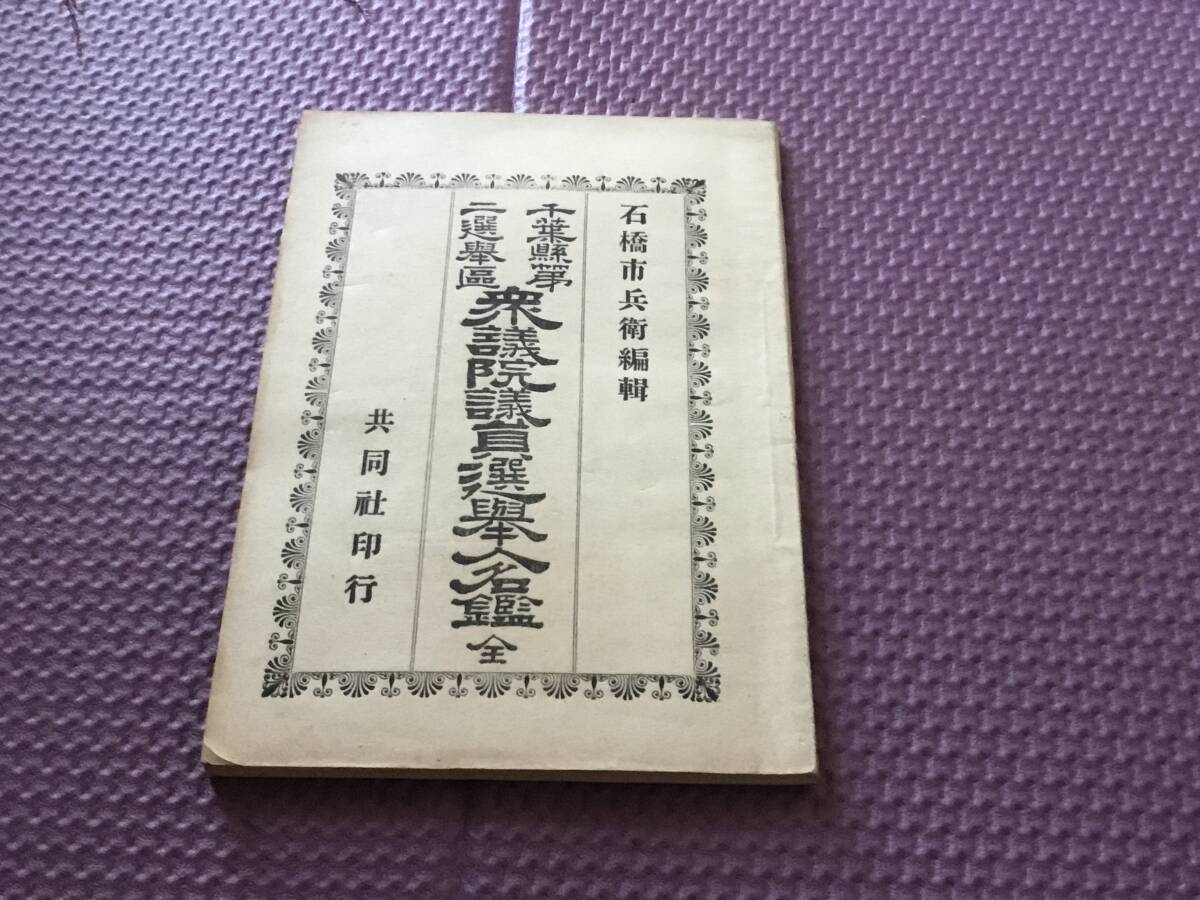 石橋市兵衛編輯
千葉縣第
二選舉區
衆議院議員選舉人名鑑全
共同社印行